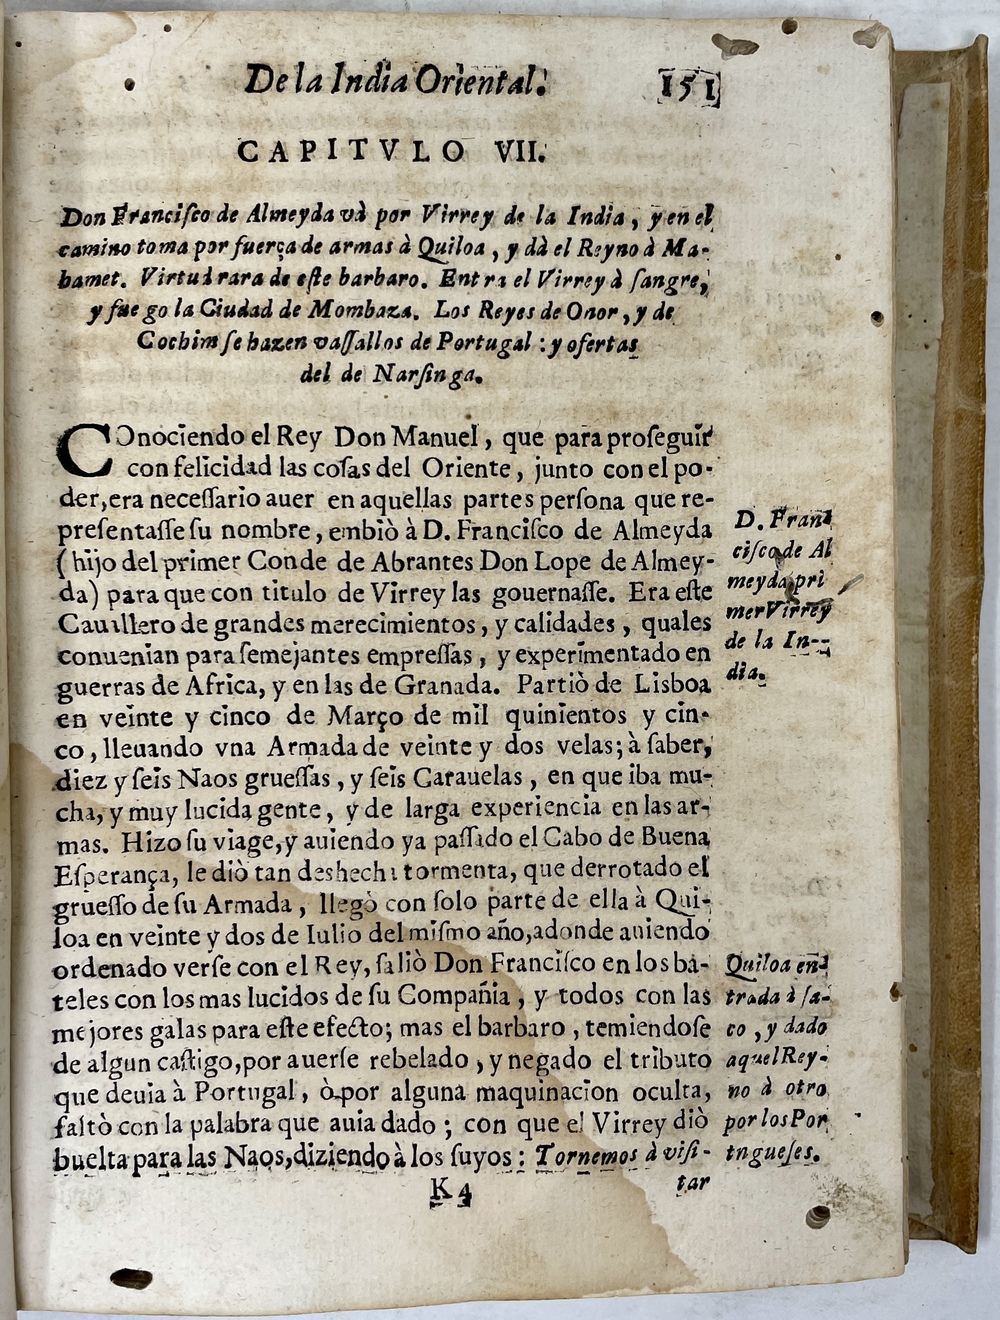 De la India Oriental. 151
CAPITVLO VII.
Don Francisco de Almeyda và por Virrey de la India, y en el
camino toma por fuerça de armas à Quiloa, y dà el Reyno à Ma-
hamet. Virtud rara de este barbaro. Entra el Virrey à sangre,
y fuego la Ciudad de Mombaza. Los Reyes de Onor, y de
Cochim se hazen vassallos de Portugal: y ofertas
del de Narsinga.
COnociendo el Rey Don Manuel, que para proseguir
con felicidad las cosas del Oriente, junto con el po-
der, era necessario auer en aquellas partes persona que re-
presentasse su nombre, embiò à D. Francisco de Almeyda
(hijo del primer Conde de Abrantes Don Lope de Almey-
da) para que con titulo de Virrey las gouernasse. Era este
Cauallero de grandes merecimientos, y calidades, quales
conuenian para semejantes empressas, y experimentado en
guerras de Africa, y en las de Granada. Partiò de Lisboa
en veinte y cinco de Março de mil quinientos y cin-
co, lleuando vna Armada de veinte y dos velas; à saber,
diez y seis Naos gruessas, y seis Carauelas, en que iba mu-
cha, y muy lucida gente, y de larga experiencia en las ar-
mas. Hizo su viage, y auiendo ya passado el Cabo de Buena
Esperança, le diò tan deshecha tormenta, que derrotado el
gruesso de su Armada, llegò con solo parte de ella à Qui-
loa en veinte y dos de Iulio del mismo año, adonde auiendo
ordenado verse con el Rey, saliò Don Francisco en los ba-
teles con los mas lucidos de su Compañia, y todos con las
mejores galas para este efecto; mas el barbaro, temiendose
de algun castigo, por auerse rebelado, y negado el tributo
que deuia à Portugal, ò por alguna maquinacion oculta,
faltò con la palabra que auia dado; con que el Virrey diò
buelta para las Naos, diziendo à los suyos: Tornemos à visi-
K4 tar
D. Fran-
cisco de Al
meyda pri
mer Virrey
de la In-
dia.
Quiloa en-
trada à sa-
co, y dado
aquel Rey-
no à otro
por los Por
tugueses.